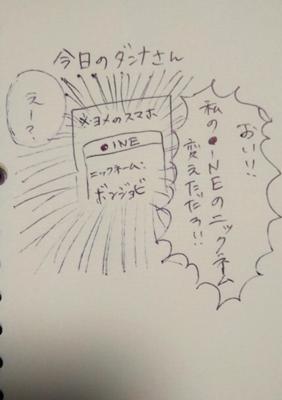 今日のダンナさん
おい!!
私の●INEのニックネーム
変えただろう!!
えー?
※ヨメのスマホ
●INE
ニックネーム:
ボンジョビ